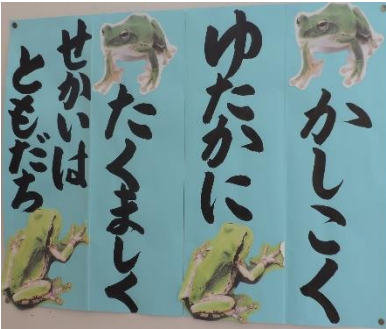 かしこく
ゆたかに
たくましく
せかいは
ともだち